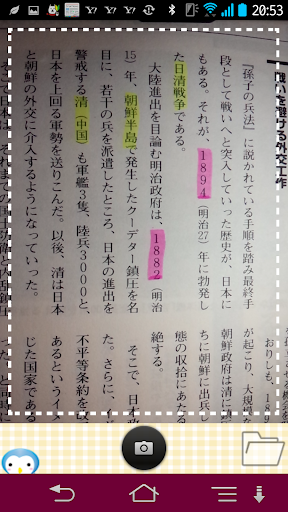 20:53
戦いを避ける外交工作
『孫子の兵法』に説かれている手順を踏み最終手
段として戦いへと突入していった歴史が、日本に
もある。それが、1894(明治27)年に勃発し
た日清戦争である。
大陸進出を目論む明治政府は、1882(明治
15)年、朝鮮半島で発生したクーデター鎮圧を名
目に、若干の兵を派遣したところ、日本の進出を
警戒する清(中国)も軍艦3隻、陸兵3000と、
日本を上回る軍勢を送りこんだ。以後、清は日本
と朝鮮の外交に介入するようになっていった。
そこで日本は、それまでの国土防衛と内乱鎮圧
おりしも、
が起こり、大規模
朝鮮政府は清に
ちに朝鮮に出兵し
態の収拾にあた
絶する。
そこで、日本政
た。さらに、イ
不平等条約を
あるというイ
じた国家である